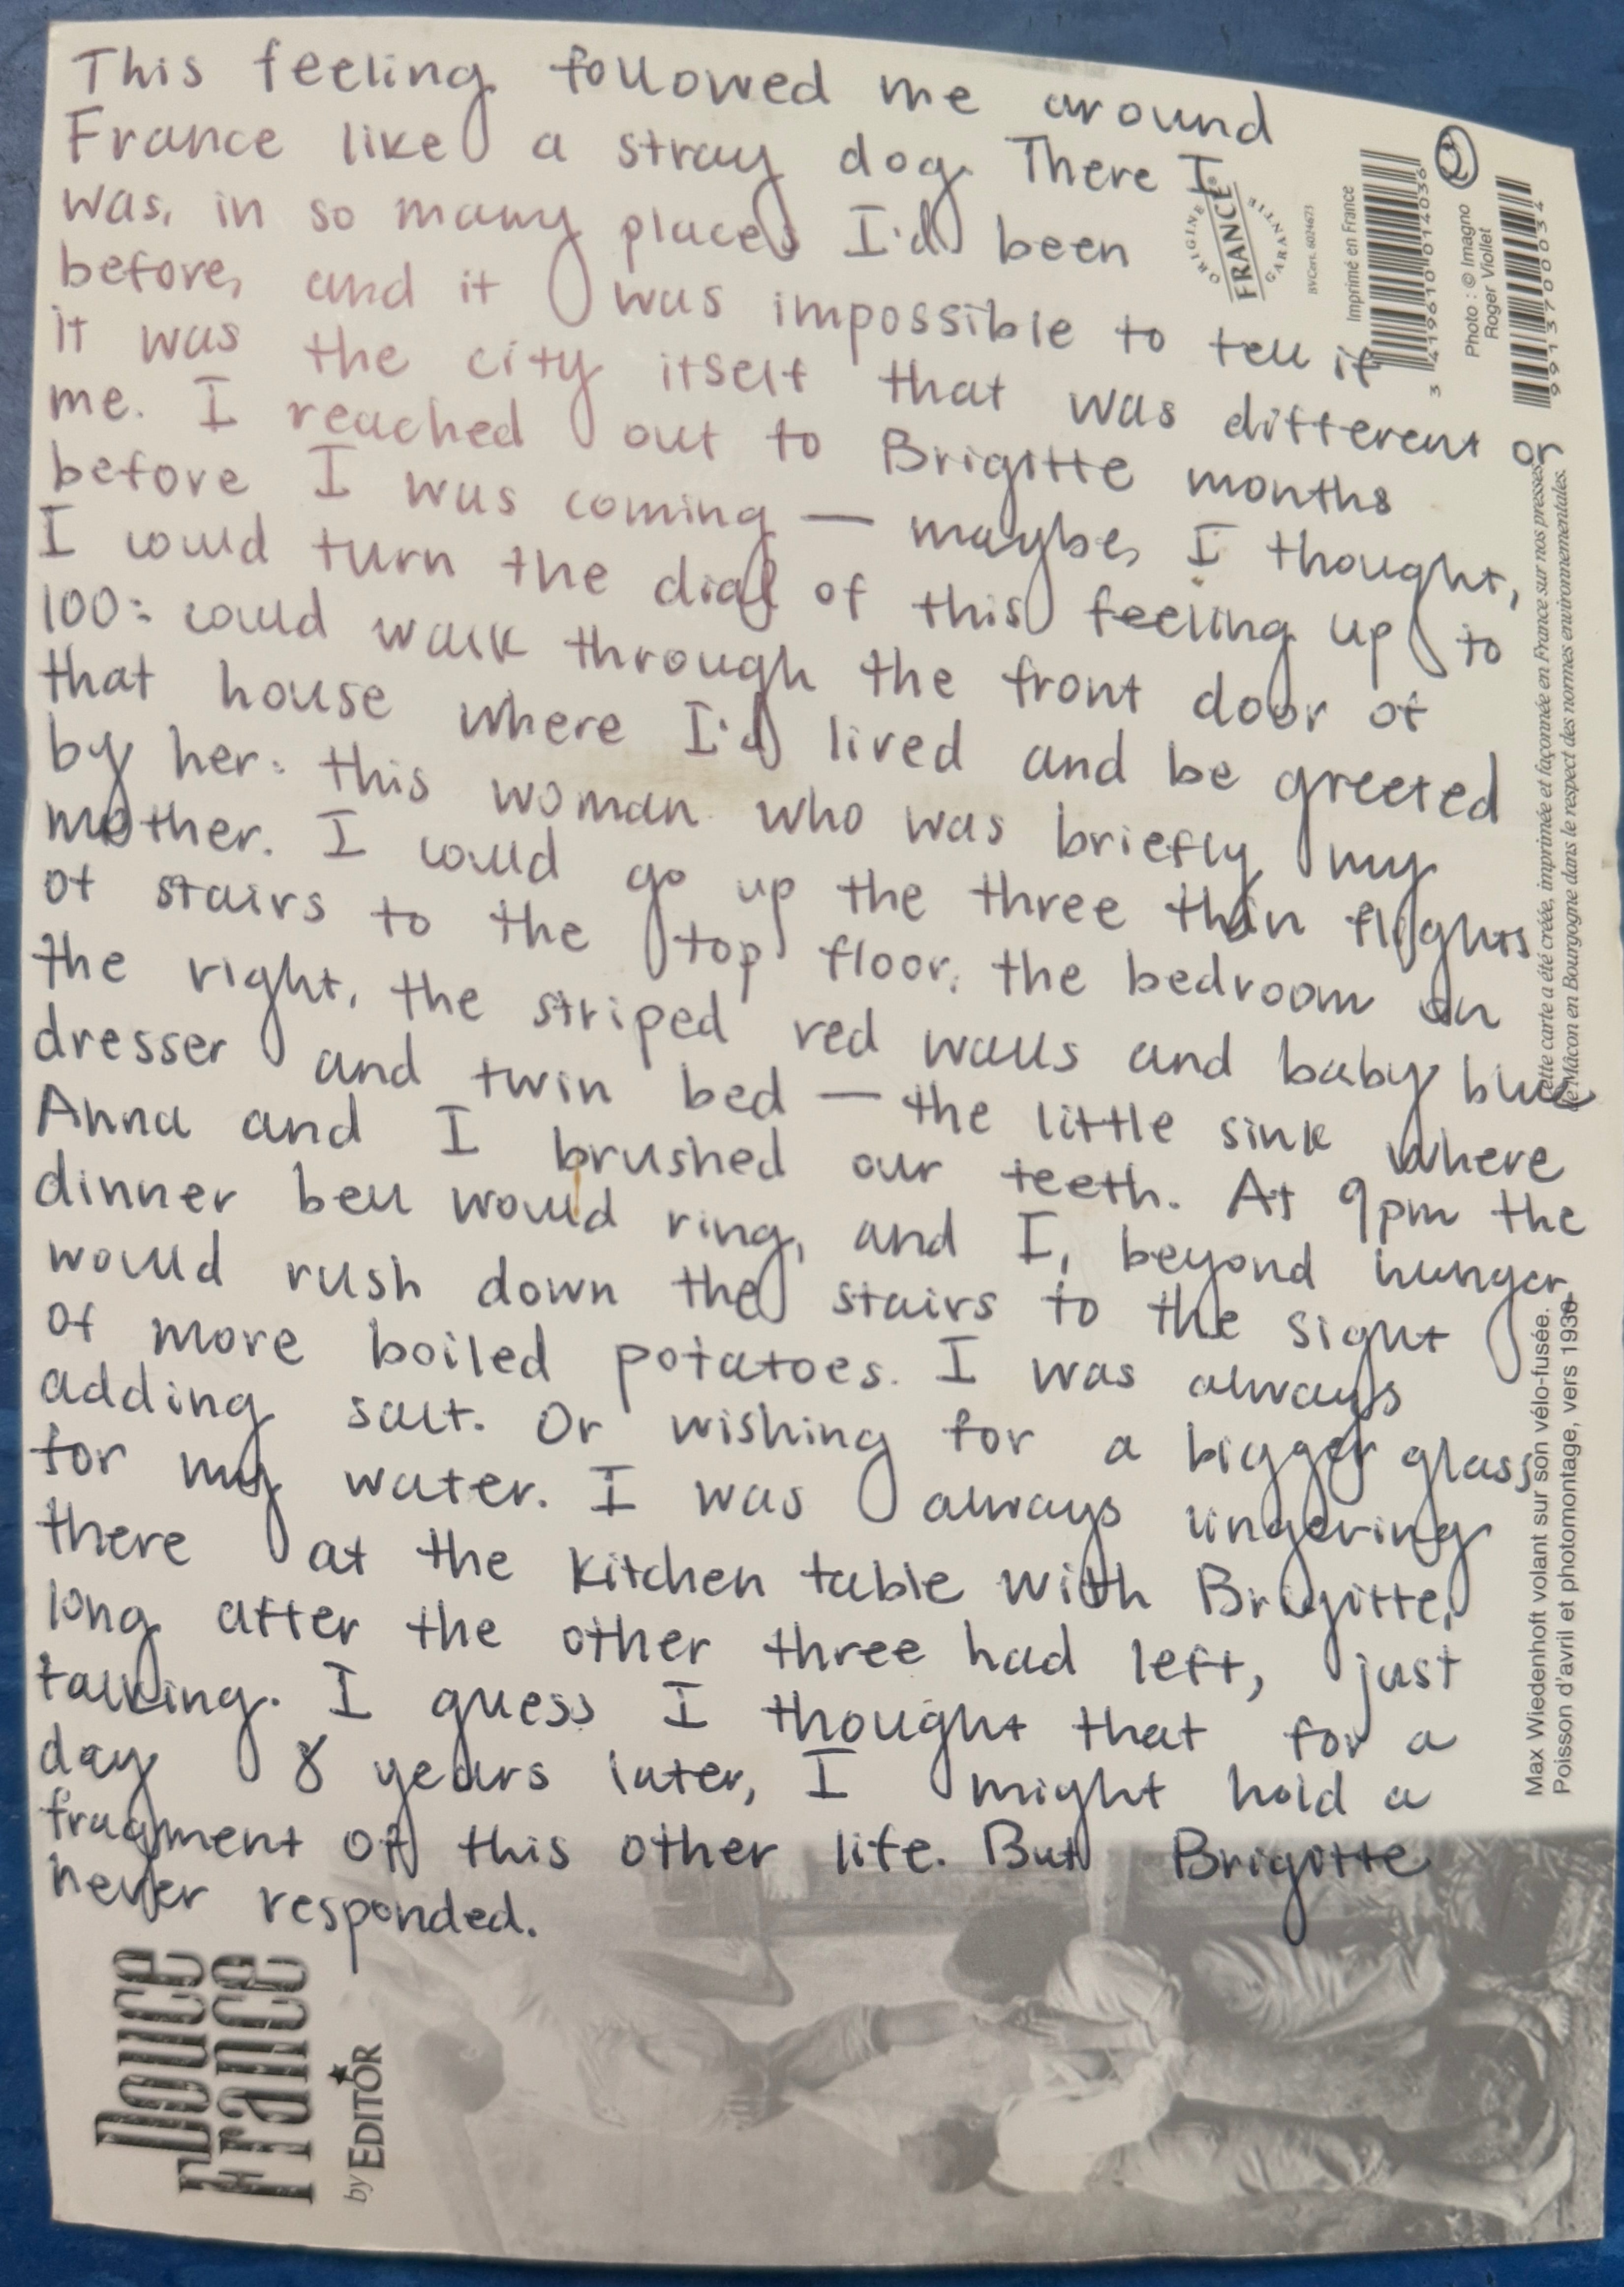 This feeling followed me around
France like a stray dog. There I
was, in so many places I'd been
before, and it was impossible to tell if
it was the city itself that was different or
me. I reached out to Brigitte months
before I was coming — maybe, I thought,
I could turn the dial of this feeling up to
100: could walk through the front door of
that house where I'd lived and be greeted
by her: this woman who was briefly my
mother. I could go up the three thin flights
of stairs to the top floor, the bedroom on
the right, the striped red walls and baby blue
dresser and twin bed — the little sink where
Anna and I brushed our teeth. At 9pm the
dinner bell would ring, and I, beyond hunger,
would rush down the stairs to the sight
of more boiled potatoes. I was always
adding salt. Or wishing for a bigger glass
for my water. I was always lingering
there at the kitchen table with Brigitte,
long after the other three had left, just
talking. I guess I thought that for a
day 8 years later, I might hold a
fragment of this other life. But Brigitte
never responded.
2
ORIGINE
FRANCE
GARANTIE
BVCert. 6024673
Imprimé en France
3 419610 014036
Photo : © Imagno
Roger Viollet
9913700034
ette carte a été créée, imprimée et façonnée en France sur nos presses
de Mâcon en Bourgogne dans le respect des normes environnementales.
Max Wiedenhoft volant sur son vélo-fusée.
Poisson d'avril et photomontage, vers 1930
Douce
France
by EDITOR